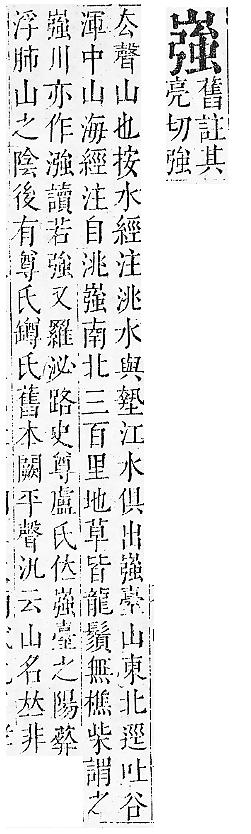 嵹
舊註其
亮切強
厺聲山也按水經注洮水與墊江水俱出嵹臺山東北逕吐谷
渾中山海經注自洮嵹南北三百里地草皆龍鬚無樵柴謂之
嵹川亦作漒讀若強又羅泌路史尊盧氏伏嵹臺之陽葬
浮肺山之陰後有尊氏罇氏舊本闕平聲汎云山名𠀤非